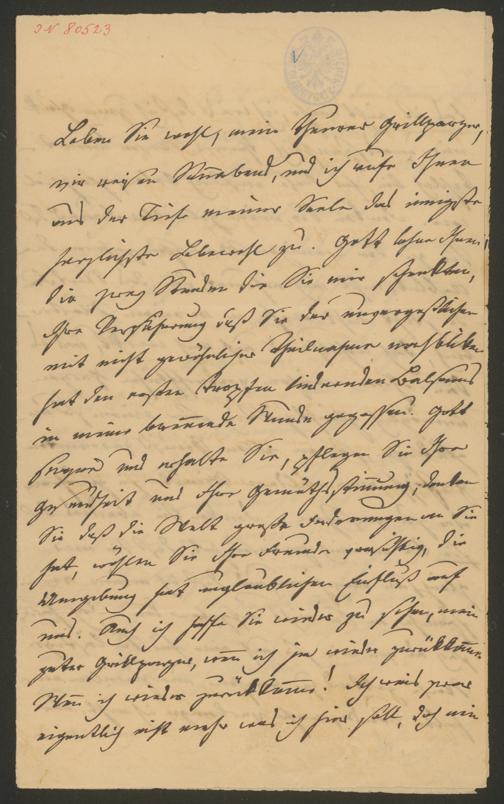 I N 80523
Leben Sie wohl, mein theurer Grillparzer,
wir reisen Sonnabend, und ich rufe Ihnen
aus der Tiefe meiner Seele das innigste
herzlichste Lebewohl zu. Gott lohne Ihnen
die zwey Stunden die Sie mir schenkten,
Ihre Versicherung daß Sie der unvergeßlichen
mit nicht gewöhnlicher Theilnahme nachblicken
hat den ersten Tropfen lindernden Balsams
in meine brennende Wunde gegossen. Gott
segne und erhalte Sie, pflegen Sie Ihre
Gesundheit und Ihre Gemüthsstimmung, denken
Sie daß die Welt große Foderungen an Sie
hat, wählen Sie Ihre Freunde vorsichtig, die
Umgebung hat unglaublichen Einfluß auf
uns. Auch ich hoffe Sie wieder zu sehen, mein
guter Grillparzer, wenn ich je wieder zurückkomme
Wenn ich wieder zurückkomme! Ich weis zwar
eigentlich nicht mehr was ich hier soll, doch